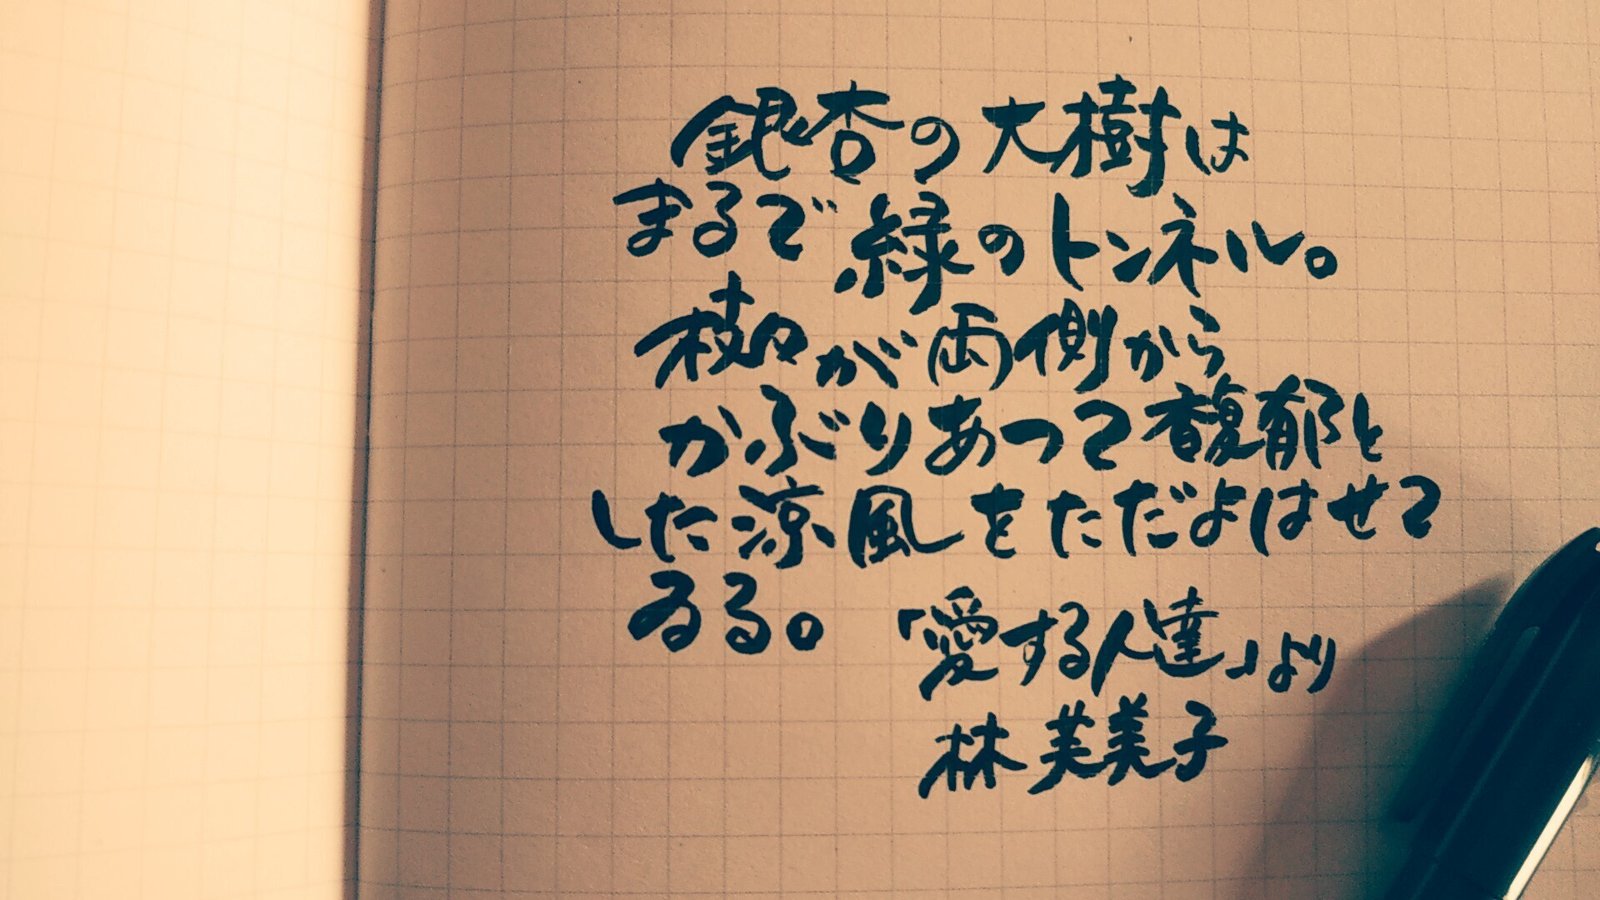 銀杏の大樹は
まるで緑のトンネル。
枝々が両側から
かぶりあつて馥郁と
した涼風をただよはせて
ゐる。
「愛する人達」より
林芙美子